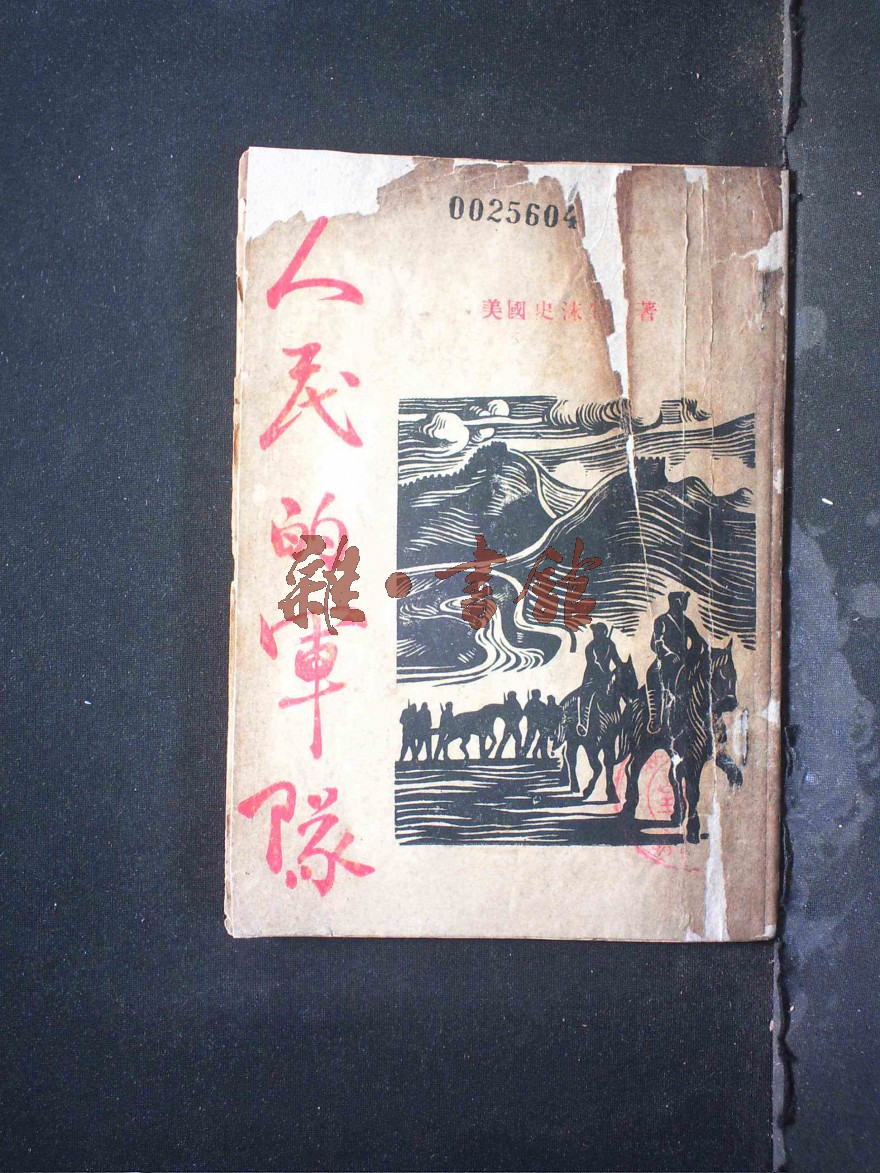 0025604
美國史沫 著
人民的軍隊
雜·書館